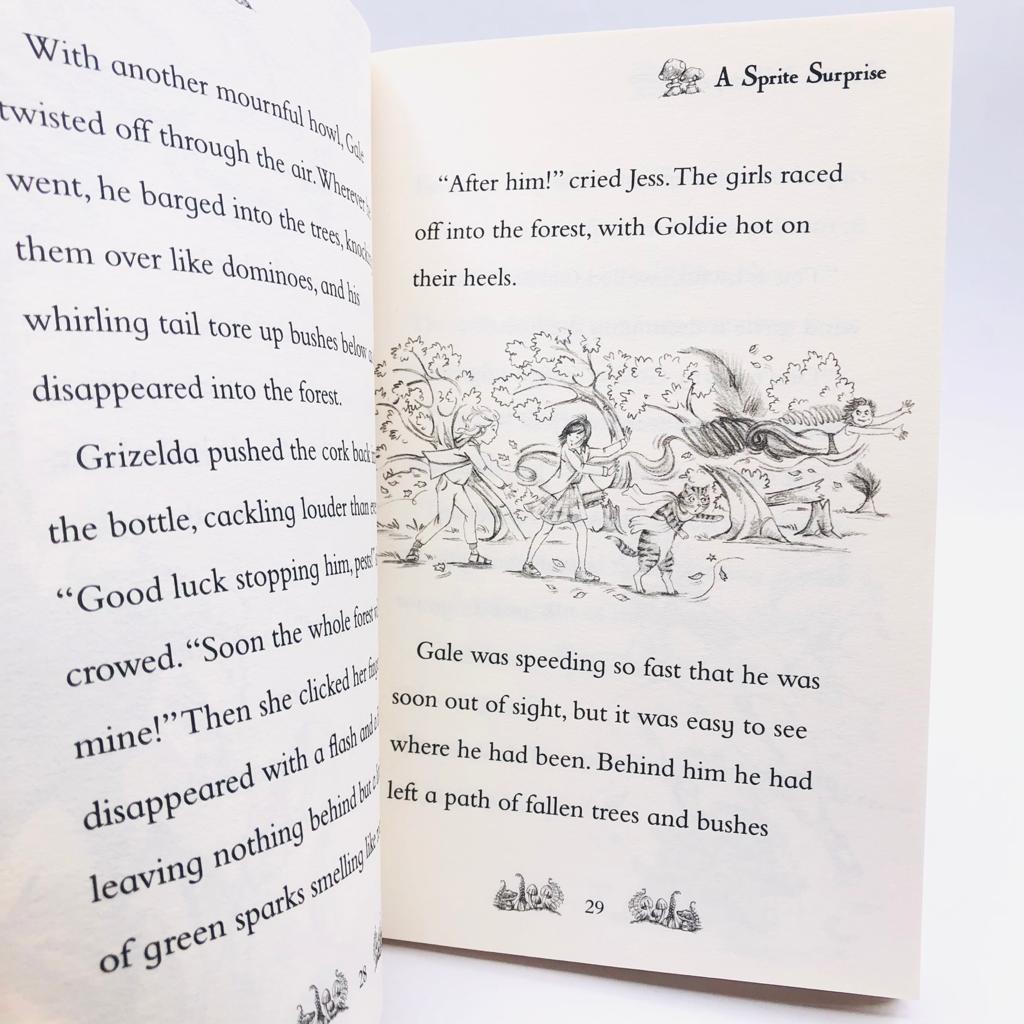 With another mournful howl, Gale
twisted off through the air. Wherever
went, he barged into the trees,
them over like dominoes, and his
whirling tail tore up bushes below
disappeared into the forest.
Grizelda pushed the cork back
the bottle, cackling louder than
“Good luck stopping him,
crowed. “Soon the whole forest
mine!” Then she clicked her
disappeared with a flash and a
leaving nothing behind but a
of green sparks smelling like
28
A Sprite Surprise
“After him!” cried Jess. The girls raced
off into the forest, with Goldie hot on
their heels.
Gale was speeding so fast that he was
soon out of sight, but it was easy to see
where he had been. Behind him he had
left a path of fallen trees and bushes
29